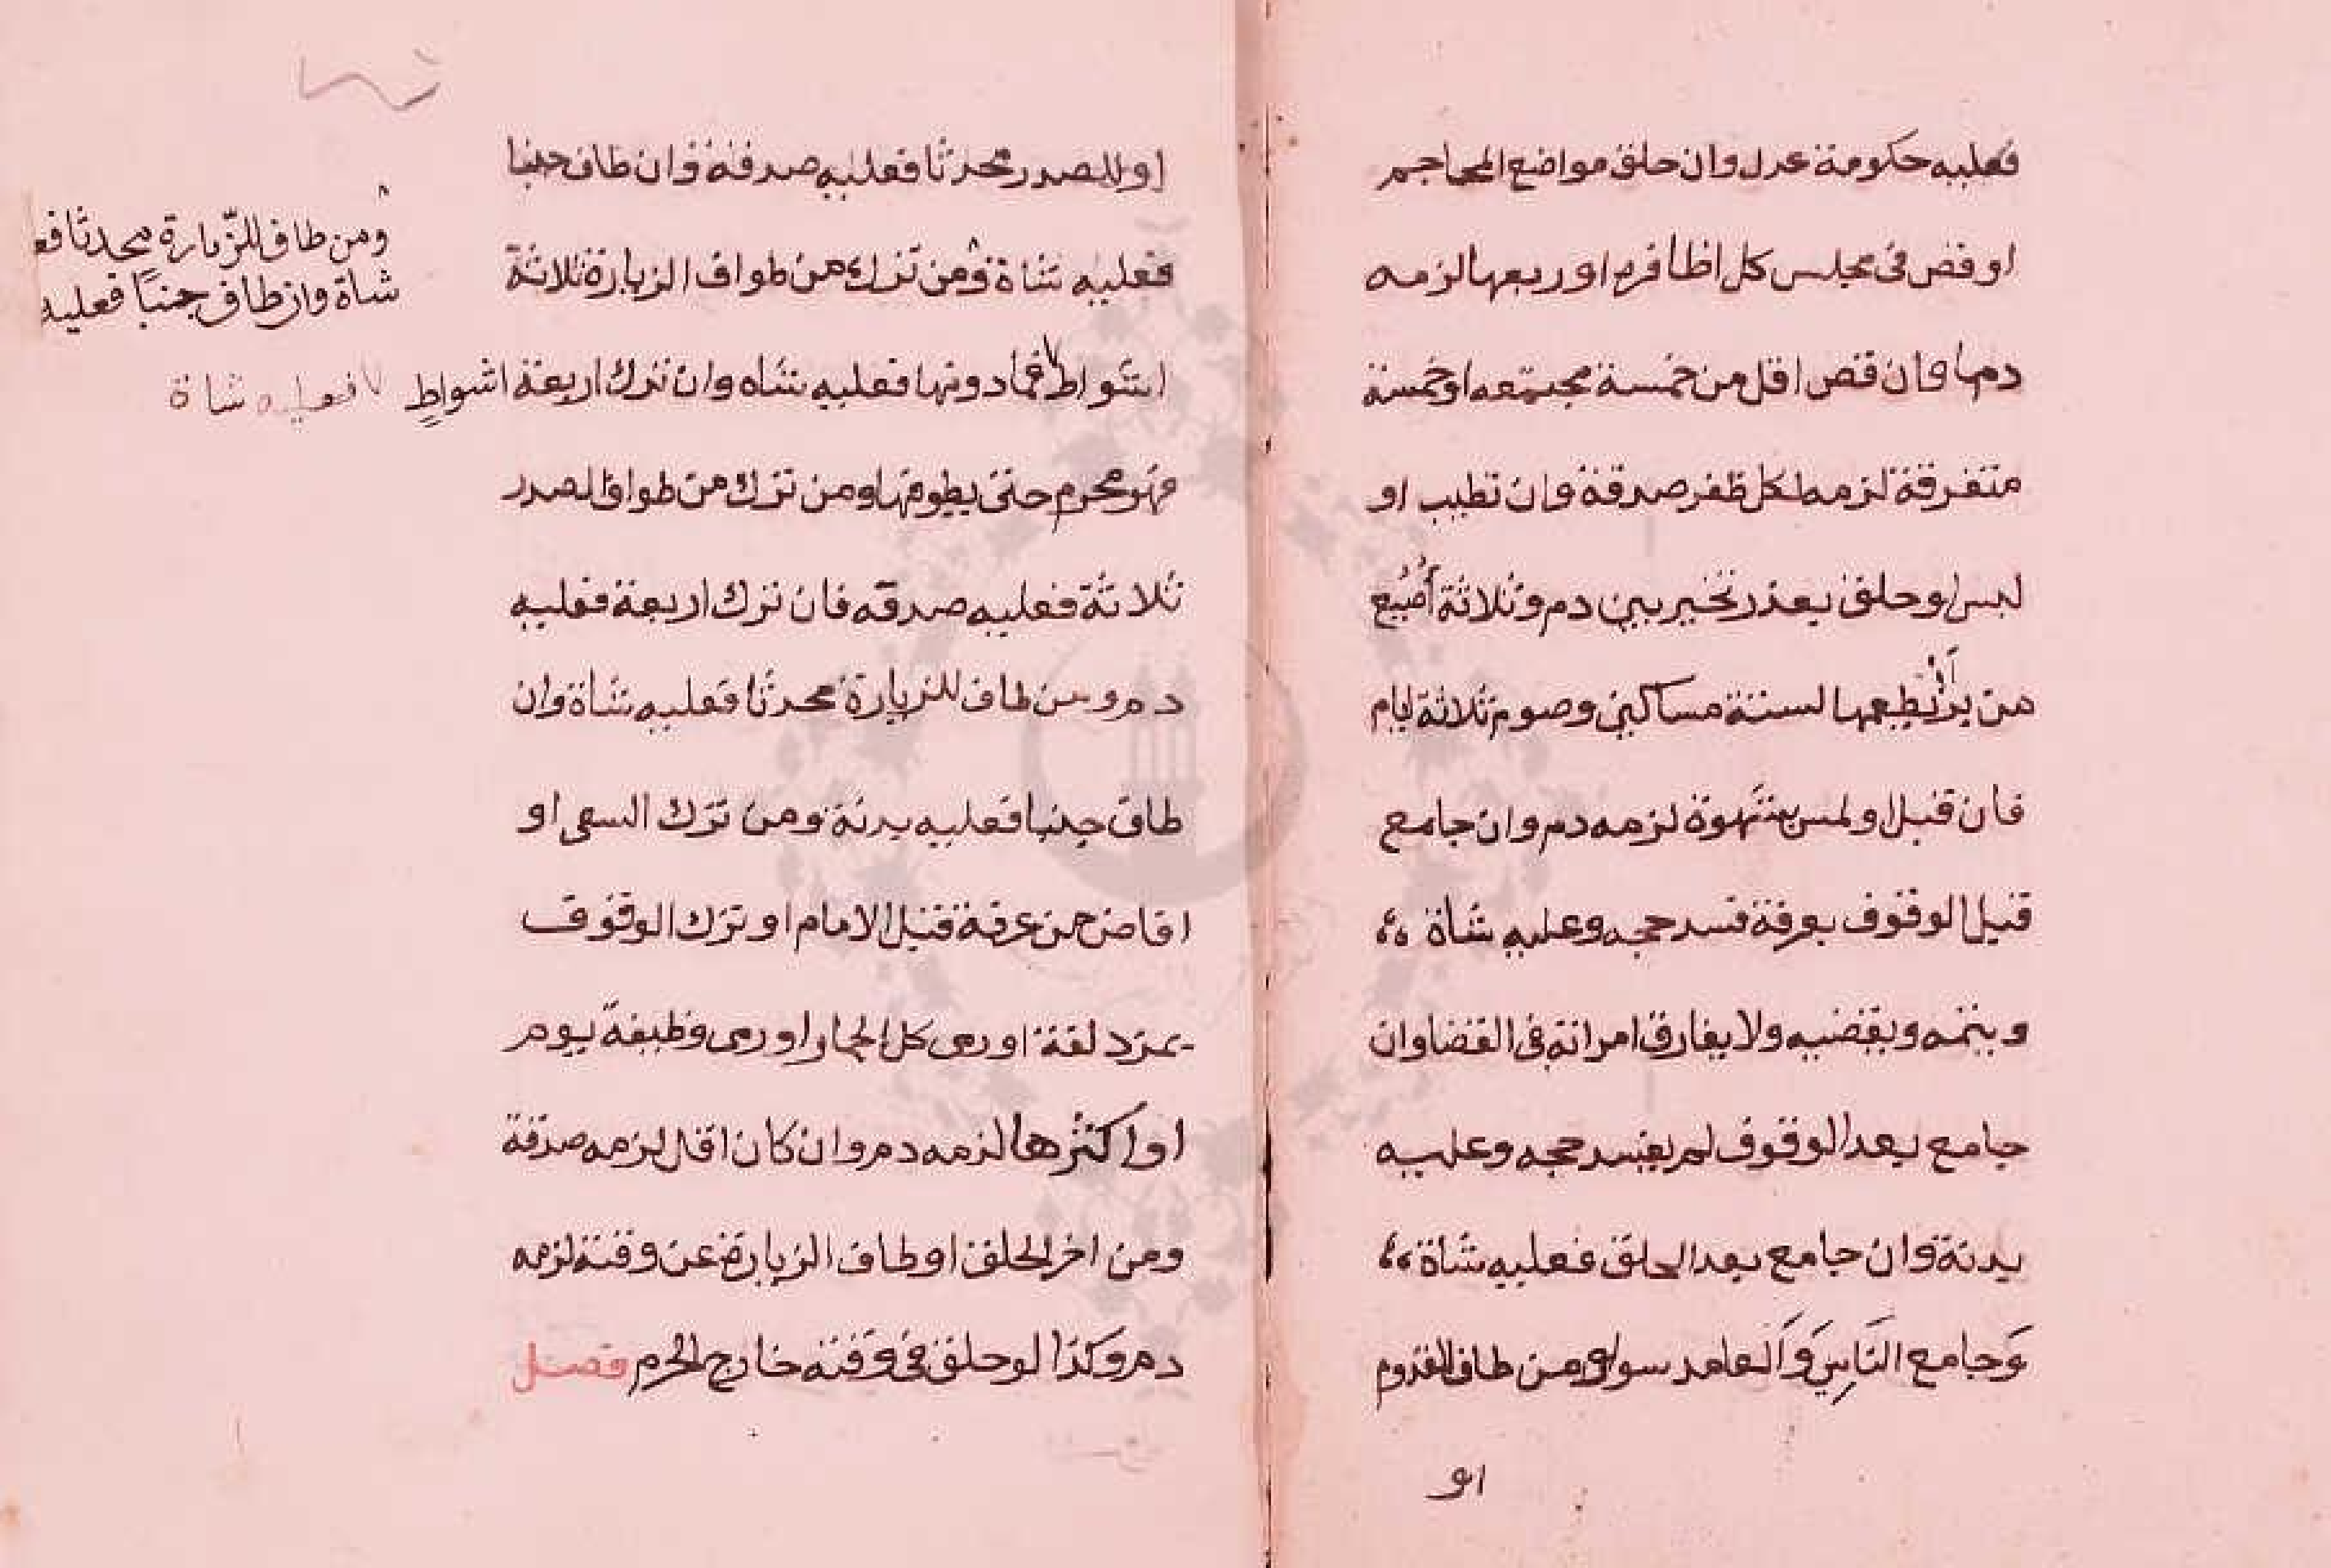 فعليه حكومة عدل وان حلق مواضع المحاجم
او قص فى مجلس كل اظافره او ربعها لزمه
دم وان قص اقل من خمسة مجتمعه او خمسة
متفرقة لزمه لكل ظفر صدقة وان تطيب او
لبس او حلق بعذر تخير بين دم وثلاثة أصُع
من بر يطعمها لستة مساكين وصوم ثلاثة ايام
فان قبل او لمس بشهوة لزمه دم وان جامع
قبل الوقوف بعرفة فسد حجه وعليه شاة
ويتمه ويقضيه ولا يفارق امراته فى القضا وان
جامع بعد الوقوف لم يفسد حجه وعليه
بدنة وان جامع بعد الحلق فعليه شاة
وَجامع النَاسِ وَالعامد سوا ومن طاف للقدوم
او
او للصدر محدثا فعليه صدقة وان طاف جنبا
فعليه شاة ومن ترك من طواف الزيارة ثلاثة
اشواط فما دونها فعليه شاه وان ترك اربعة اشواطٍ
فهو محرم حتى يطوفها ومن ترك من طواف الصدر
ثلاثة فعليه صدقه فان ترك اربعة فعليه
دم ومن طاف للزيارة محدثا فعليه شاة وان
طاف جنبا فعليه بدنة ومن ترك السعى او
افاض من عرفة قبل الامام او ترك الوقوف
بمزدلفة او رمى كل الجمار او رمى وظيفة يوم
او اكثرها لزمه دم وان كان اقل لزمه صدقة
ومن اخر الحلق او طاف الزيارة عن وقته لزمه
دم وكذا لو حلق فى وقته خارج الحرم فصل
ومن طاف للزّيارة محدثا فع
شاة وان طاف جنبًا فعليه
فعليه شاة